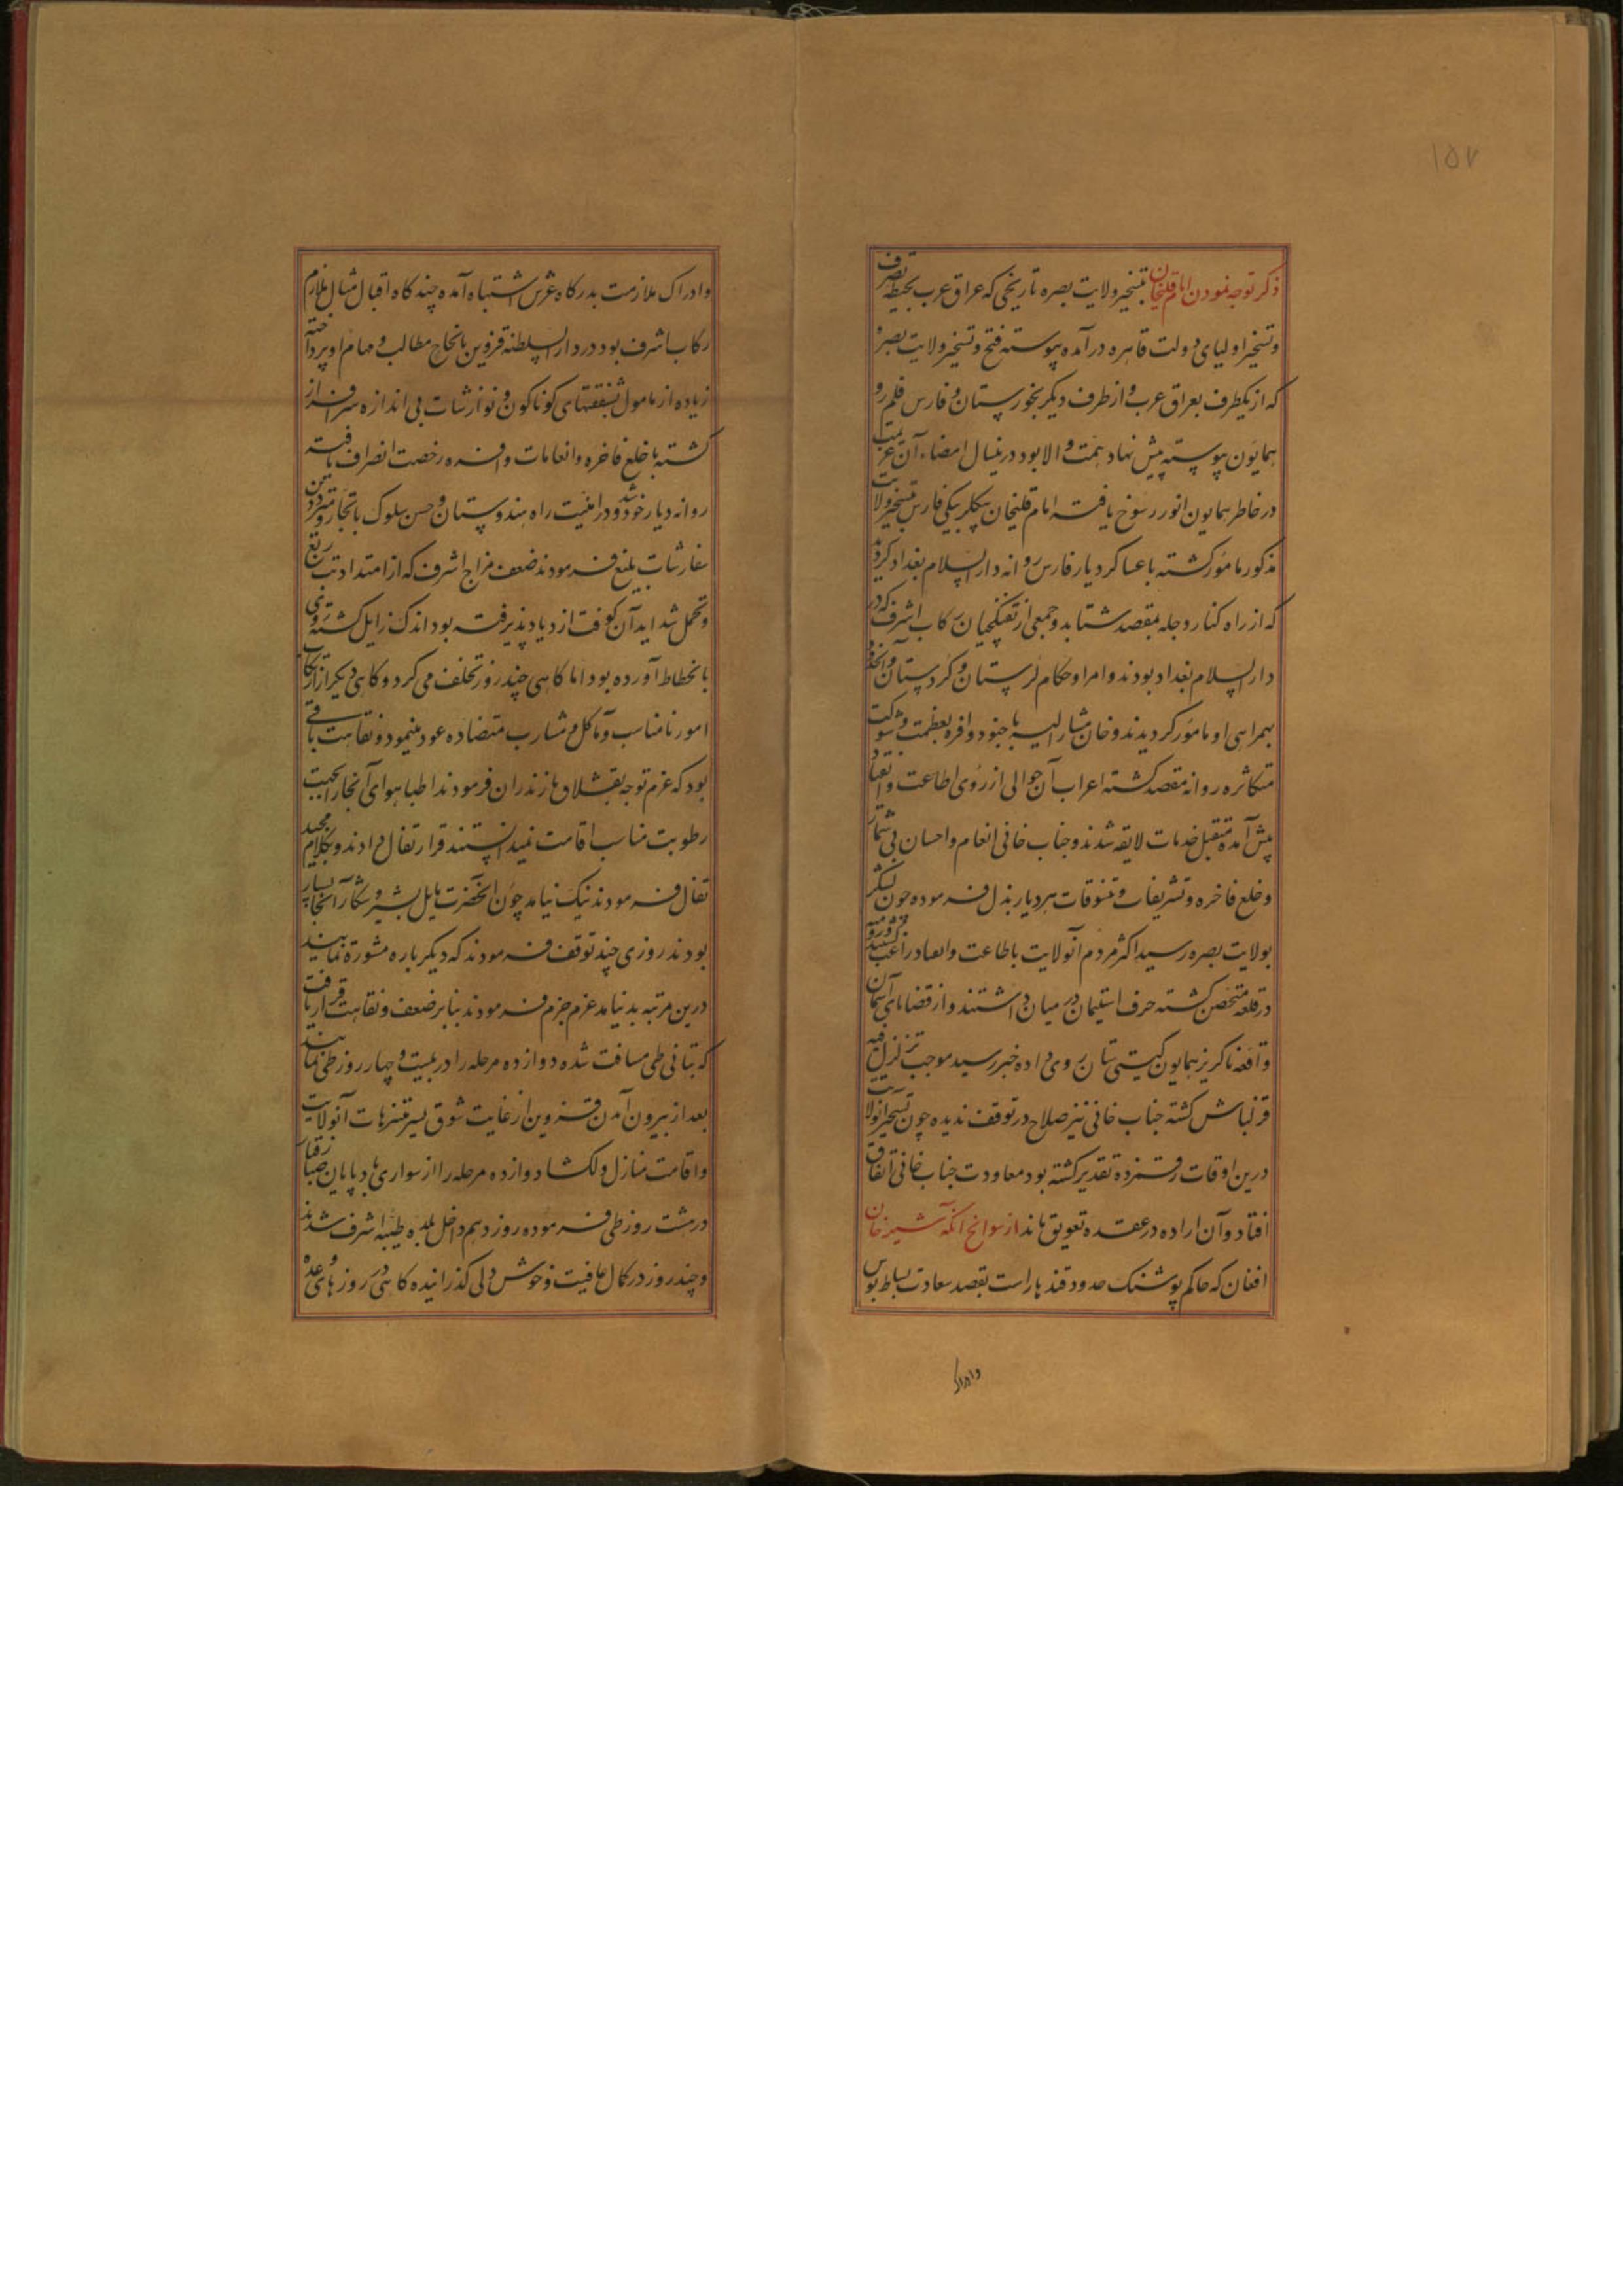 ۱۵۷
ذکر توجه نمودن امام قلیخان بتسخیر ولایت بصره تاریخی که عراق عرب بحیطه تصرف
و تسخیر اولیای دولت قاهره درآمده پیوسته فتح و تسخیر ولایت بصره
که از یکطرف بعراق عرب و از طرف دیکر بخوزستان و فارس قلمرو
همایون پیوسته پیش نهاد همت والا بود درینسال امضاء آن عزیمت
در خاطر همایون انور رسوخ یافته امام قلیخان بیکلربیکی فارس بتسخیر ولایت
مذکور مامور کشته با عساکر دیار فارس روانه دارالسلام بغداد کردید
که از راه کنار دجله بمقصد شتابد و جمعی از تفنکچیان رکاب اشرف که در
دارالسلام بغداد بودند و امرا و حکام لرستان و کردستان و آنحدود
بهمراهی او مامور کردیدند و خان مشار الیه با جنود وافره بعظمت و شوکت
متکاثره روانه مقصد کشته اعراب آن حوالی از روی اطاعت و انقیاد
پیش آمده متقبل خدمات لایقه شدند و جناب خانی انعام و احسان بی شمار
و خلع فاخره و تشریفات و تنسوقات هر دیار بذل فرموده چون لشکر
بولایت بصره رسید اکثر مردم آنولایت باطاعت و انقیاد راغب کشته
در قلعه متحصن کشته حرف استیمان در میان داشتند و از قضایای آسمان
واقعه ناکریز همایون کیتی ستان روی داده خبر رسید موجب تزلزل
قزلباش کشته جناب خانی نیز صلاح در توقف ندیده چون تسخیر آنولایت
درین اوقات رقمزده تقدیر کشته بود معاودت جناب خانی اتفاق
افتاد و آن اراده در عقده تعویق ماند از سوانح آنکه شیر خان
افغان که حاکم پوشنک حدود قندهار است بقصد سعادت بساط بوس
وادراک
وادراک ملازمت بدرکاه عرش اشتباه آمده چند کاه اقبال مثال ملازم
رکاب اشرف بود در دارالسلطنه قزوین بانجاح مطالب و مهام او پرداخته
زیاده از مامول بشفقتهای کوناکون و نوازشات بی اندازه سرافراز
کشته با خلع فاخره و انعامات وافره رخصت انصراف یافته
روانه دیار خود شد و در امنیت راه هندوستان و حسن سلوک با تجار و مترددین
سفارشات بلیغ فرمودند ضعف مزاج اشرف که از امتداد تب ربع
و تحمل شداید آن کوفت ازدیاد پذیرفته بود اندک زایل کشته روی
بانحطاط آورده بود اما کاهی چند روز تخلف می کرد و کاهی دیکر از ارتکاب
امور نامناسب و مآکل و مشارب متضاده عود مینمود و نقاهت باقی
بود که عزم توجه بقشلاق مازندران فرمودند اطبا هوای آنجا را بجهت
رطوبت مناسب اقامت نمیدانستند قرار تفال دادند و بکلام مجید
تفال فرمودند نیک نیامد چون آنحضرت مایل بسیر و شکار آنجا بسیار
بودند روزی چند توقف فرمودند که دیکر باره مشورة نمایند
درین مرتبه بد نیامد عزم جزم فرمودند بنابر ضعف و نقاهت قرار یافت
که بتانی طی مسافت شده دوازده مرحله را در بیست و چهار روز طی نمایند
بعد از بیرون آمدن قزوین از غایت شوق بسیر متنزهات آنولایت
و اقامت منازل دلکشا دوازده مرحله را از سواری بادپایان صبا رفتار
در هشت روز طی فرموده روز دهم داخل بلده طیبه اشرف شدند
و چند روز در کمال عافیت و خوش دلی کذرانیده کاهی در روزهای وعده